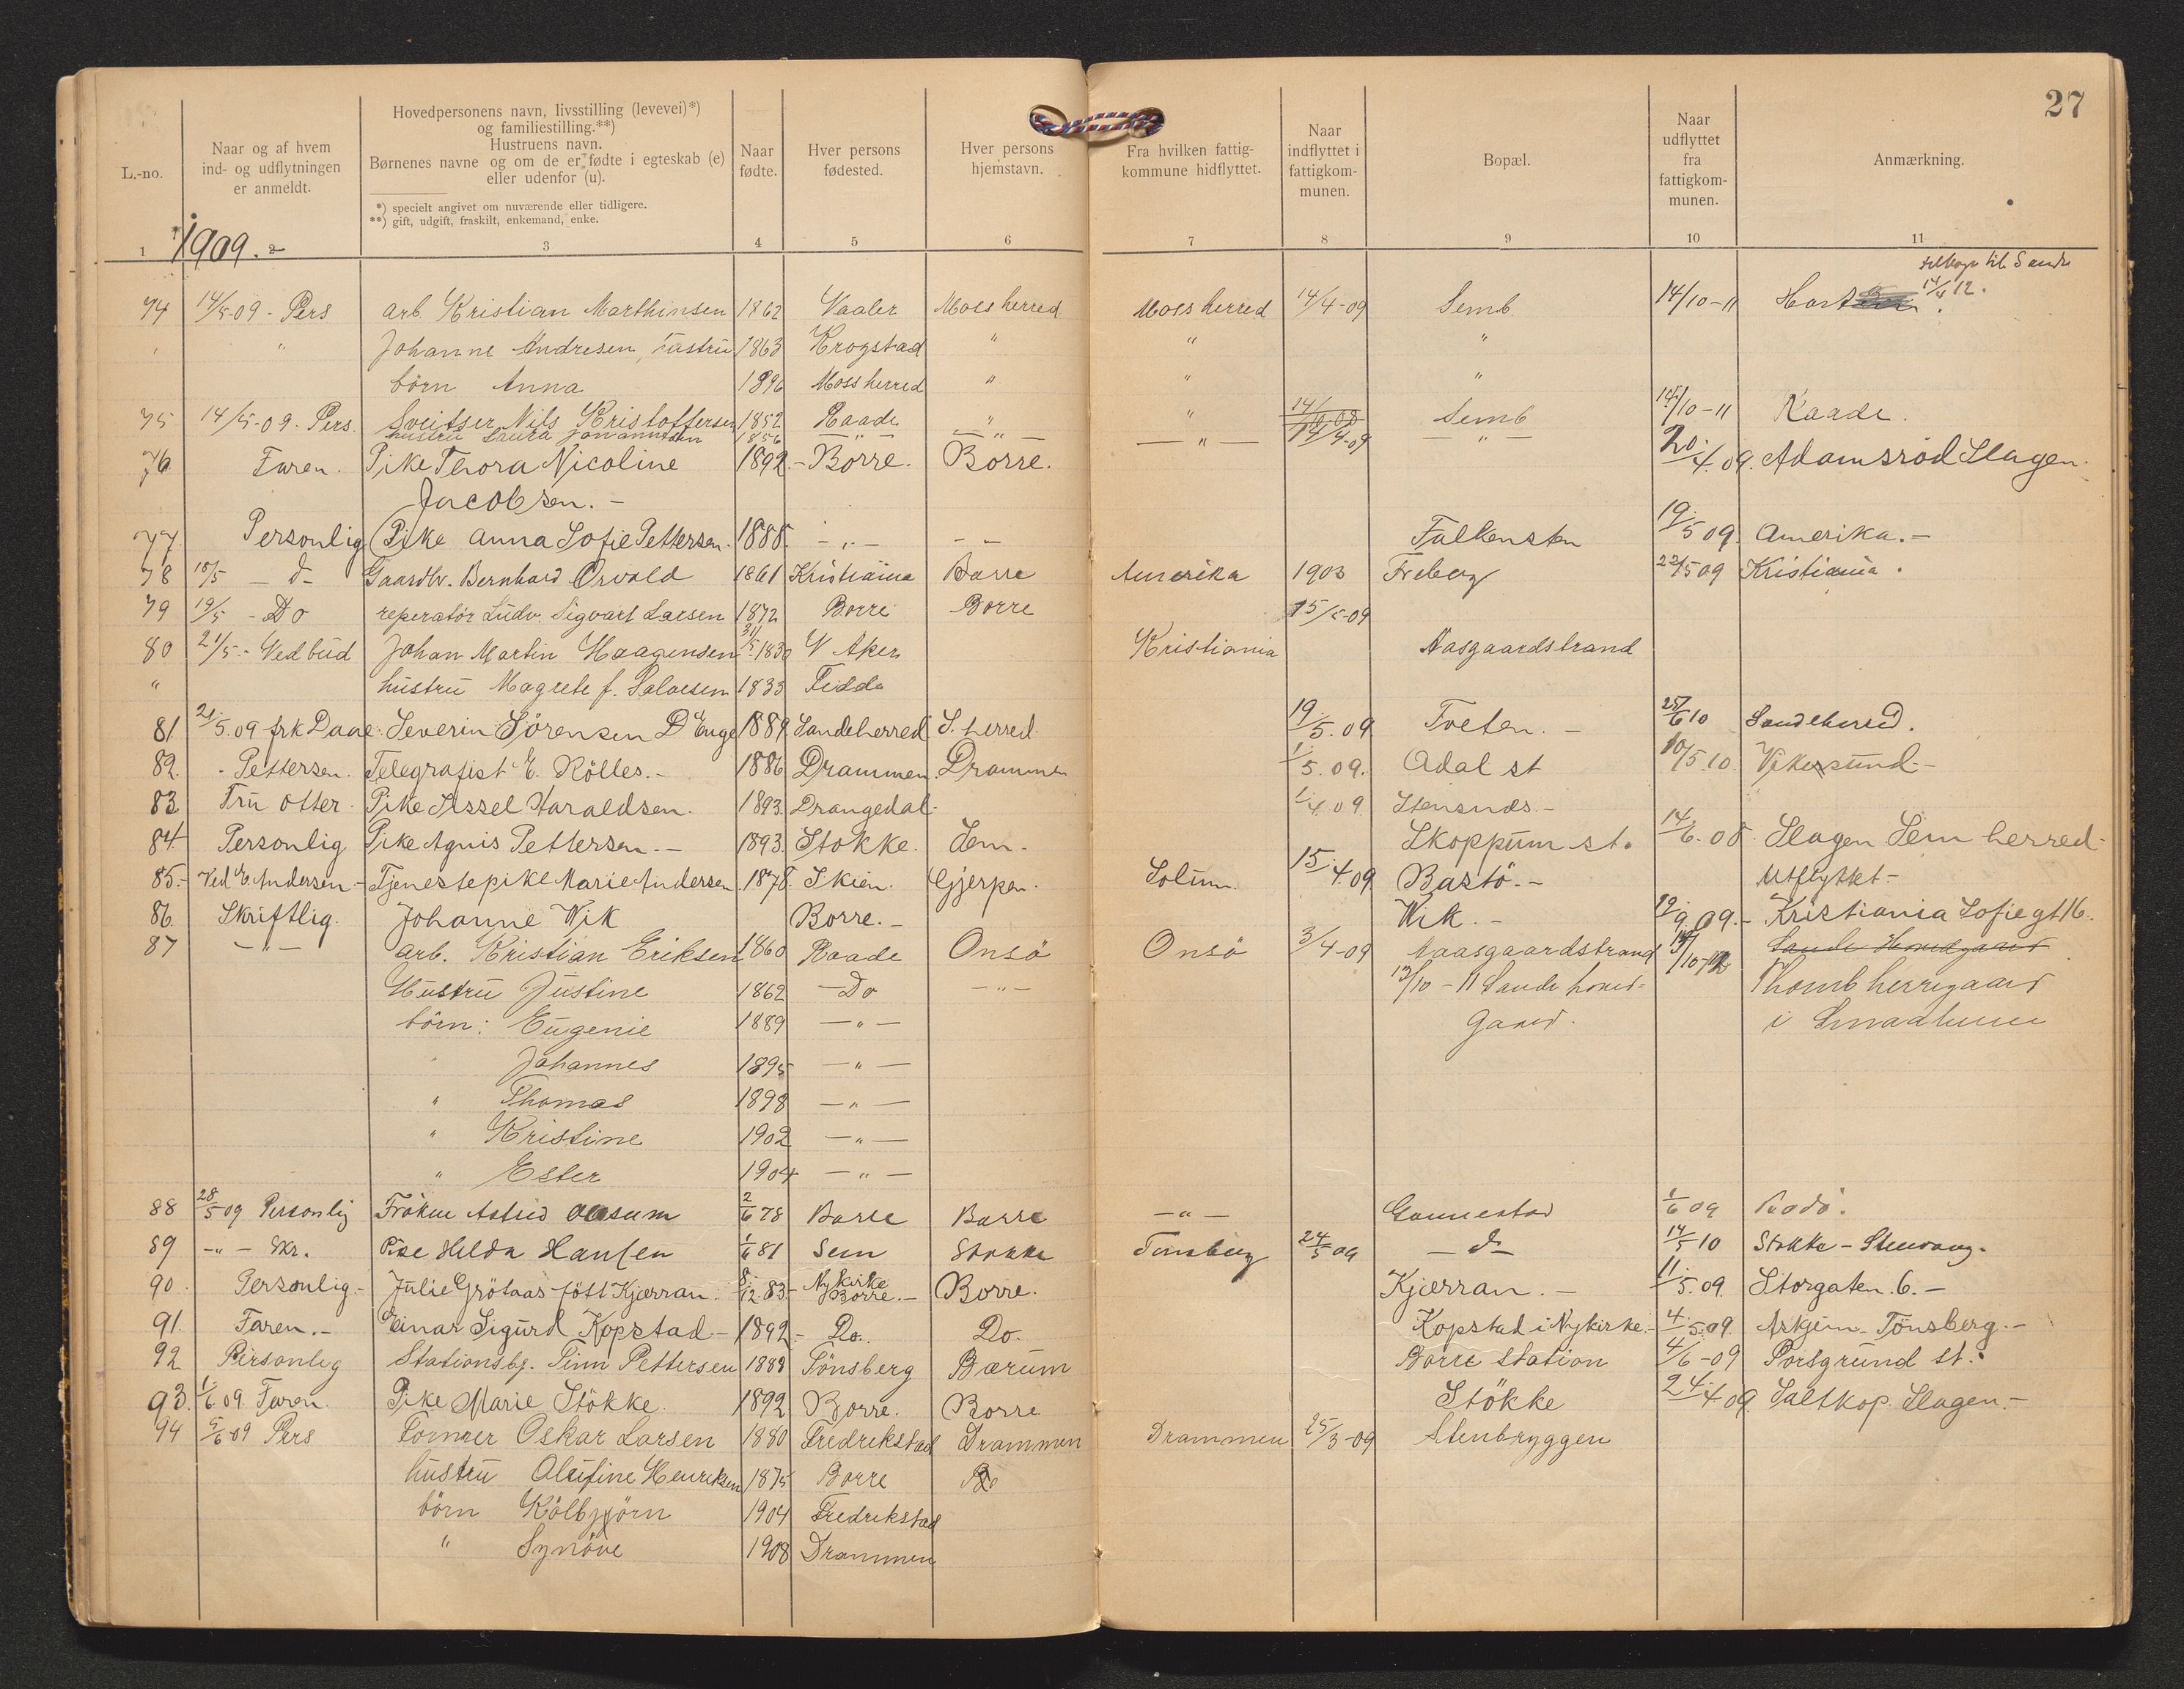 27
L.-no.
Naar og af hvem ind- og udflytningen er anmeldt.
Hovedpersonens navn, livsstilling (levevei)*)
og familiestilling.**)
Hustruens navn.
Børnenes navne og om de er fødte i egteskab (e)
eller udenfor (u).
*) specielt angivet om nuværende eller tidligere.
**) gift, udgift, fraskilt, enkemand, enke.
Naar fødte.
Hver persons fødested.
Hver persons hjemstavn.
Fra hvilken fattigkommune hidflyttet.
Naar indflyttet i fattigkommunen.
Bopæl.
Naar udflyttet fra fattigkommunen.
Anmærkning.
1 1909. 2 3 4 5 6 7 8 9 10 11
tilbage til Sande
74 14/5-09 - Pers arb. Kristian Marthinsen 1862 Vaaler Moss herred Moss herred 14/4-09 Semb 14/10-11 14/4 12.
" Johanne Andresen, hustru 1863 Krogstad " " "
börn Anna 1896 Moss herred " " "
75 14/5-09. Pers. Sveitser Nils Kristoffersen 1852 Raade " " Semb 14/10-11 Raade.
hustru Laura Johannesen 1856 — " — — " — — " — 14/4-09 — " —
76 Faren. Pike Thora Nicoline 1892.- Borre. Borre. 20/4.09. Adamsröd Slagen.
Jacobsen.-
77 Personlig Pike Anna Sofie Pettersen. 1888. - " - - - Falkensten 19/5 09. Amerika.-
78 18/5 - d- Gaardbr. Bernhard Orvald 1861 Kristiania Borre Amerika 1903 Freberg 22/5 09 Kristiania.
79 19/5 - Do reperatör Ludv. Sigvart Larsen 1872 Borre Borre 15/5-09
80 21/5.- Ved bud Johan Martin Haagensen 31/5-1830 V Aker Kristiania Aasgaardstrand
" hustru Magrete f. Saloesen 1833 Fedde
81 21/5.09 frk Daae. Severin Sörensen D Enge 1889. Sandeherred S. herred. 19/5.09 Tveten.- 25/6 10 Sandeherred.
82. - Pettersen. Telegrafist E. Rölles.- 1886 Drammen Drammen 1/5.09. Adal st 10/5.10. Vikersund-
83 Fru Otter. Pike Sissel Haraldsen. 1893. Drangedal- 1/4 09. Stensnes.-
84 Personlig Pike Agnis Pettersen.- 1893. Stokke. Sem- Skoppum st. 14/6.08 Slagen Sem herred-
85.- Ved E. Andersen- Tjenestepike Marie Andersen 1878. Skien. Gjerpen. Solum. 15/4.09 Bastö.- Utflyttet-
86. Skriftlig. Johanne Wik Borre.- Wik.- 12/9.09.- Kristiania Sofiegt 16.
87 - " - arb. Kristian Eriksen 1860 Raade Onsö Onsö 3/4-09 Aaasgaardstrand 14/10-12 Sande Hovedgaard
Hustru Justine 1862 - Do - " - 13/10 - 11 Sande hoved- Thomb herregaard
börn: Eugenie 1889 — " — gaard. i Smaalenene
" Johannes 1895 — " —
" Thomas 1898 — " —
" Kristine 1902 — " —
" Ester 1904 — " —
88 28/5 09 Personlig Fröken Astrid Aasum 2/6 78 Borre Borre - " - Gannestad 1/6 09 Rodö.
89 - " - Skr. Pike Helda Hansen 1/6 81 Sem Stokke Tønsberg 24/5 09 - d- 14/5 10 Stokke -
90. Personlig.- Julie Grötaas född Kjærran. 8/12.83.- Nykirke Borre.- Borre. Kjærran.- 11/5.09. Storgaten. 6.-
91. Faren.- Einar Sigurd Kopstad- 1892.- Do. Do. Kopstad i Nykirke.- 4/5.09. Askjem- Tönsberg.-
92 Personlig Stationsbj. Finn Pettersen 1888 Tönsberg Bærum Borre station 4/6-09 Porsgrund st.
93. 1/6.09. Faren. Pike Marie Stökke. 1892 Borre. Borre Stökke 24/4 09. Saltkop. Slagen.-
94 5/6-09 Pers Tömrer Oskar Larsen 1880 Fredrikstad Drammen Drammen 25/3-09 Stenbryggen
hustru Alufine Henriksen 1875 Borre Do
börn Kolbjörn 1904 Fredrikstad
" Synöve 1908 Drammen